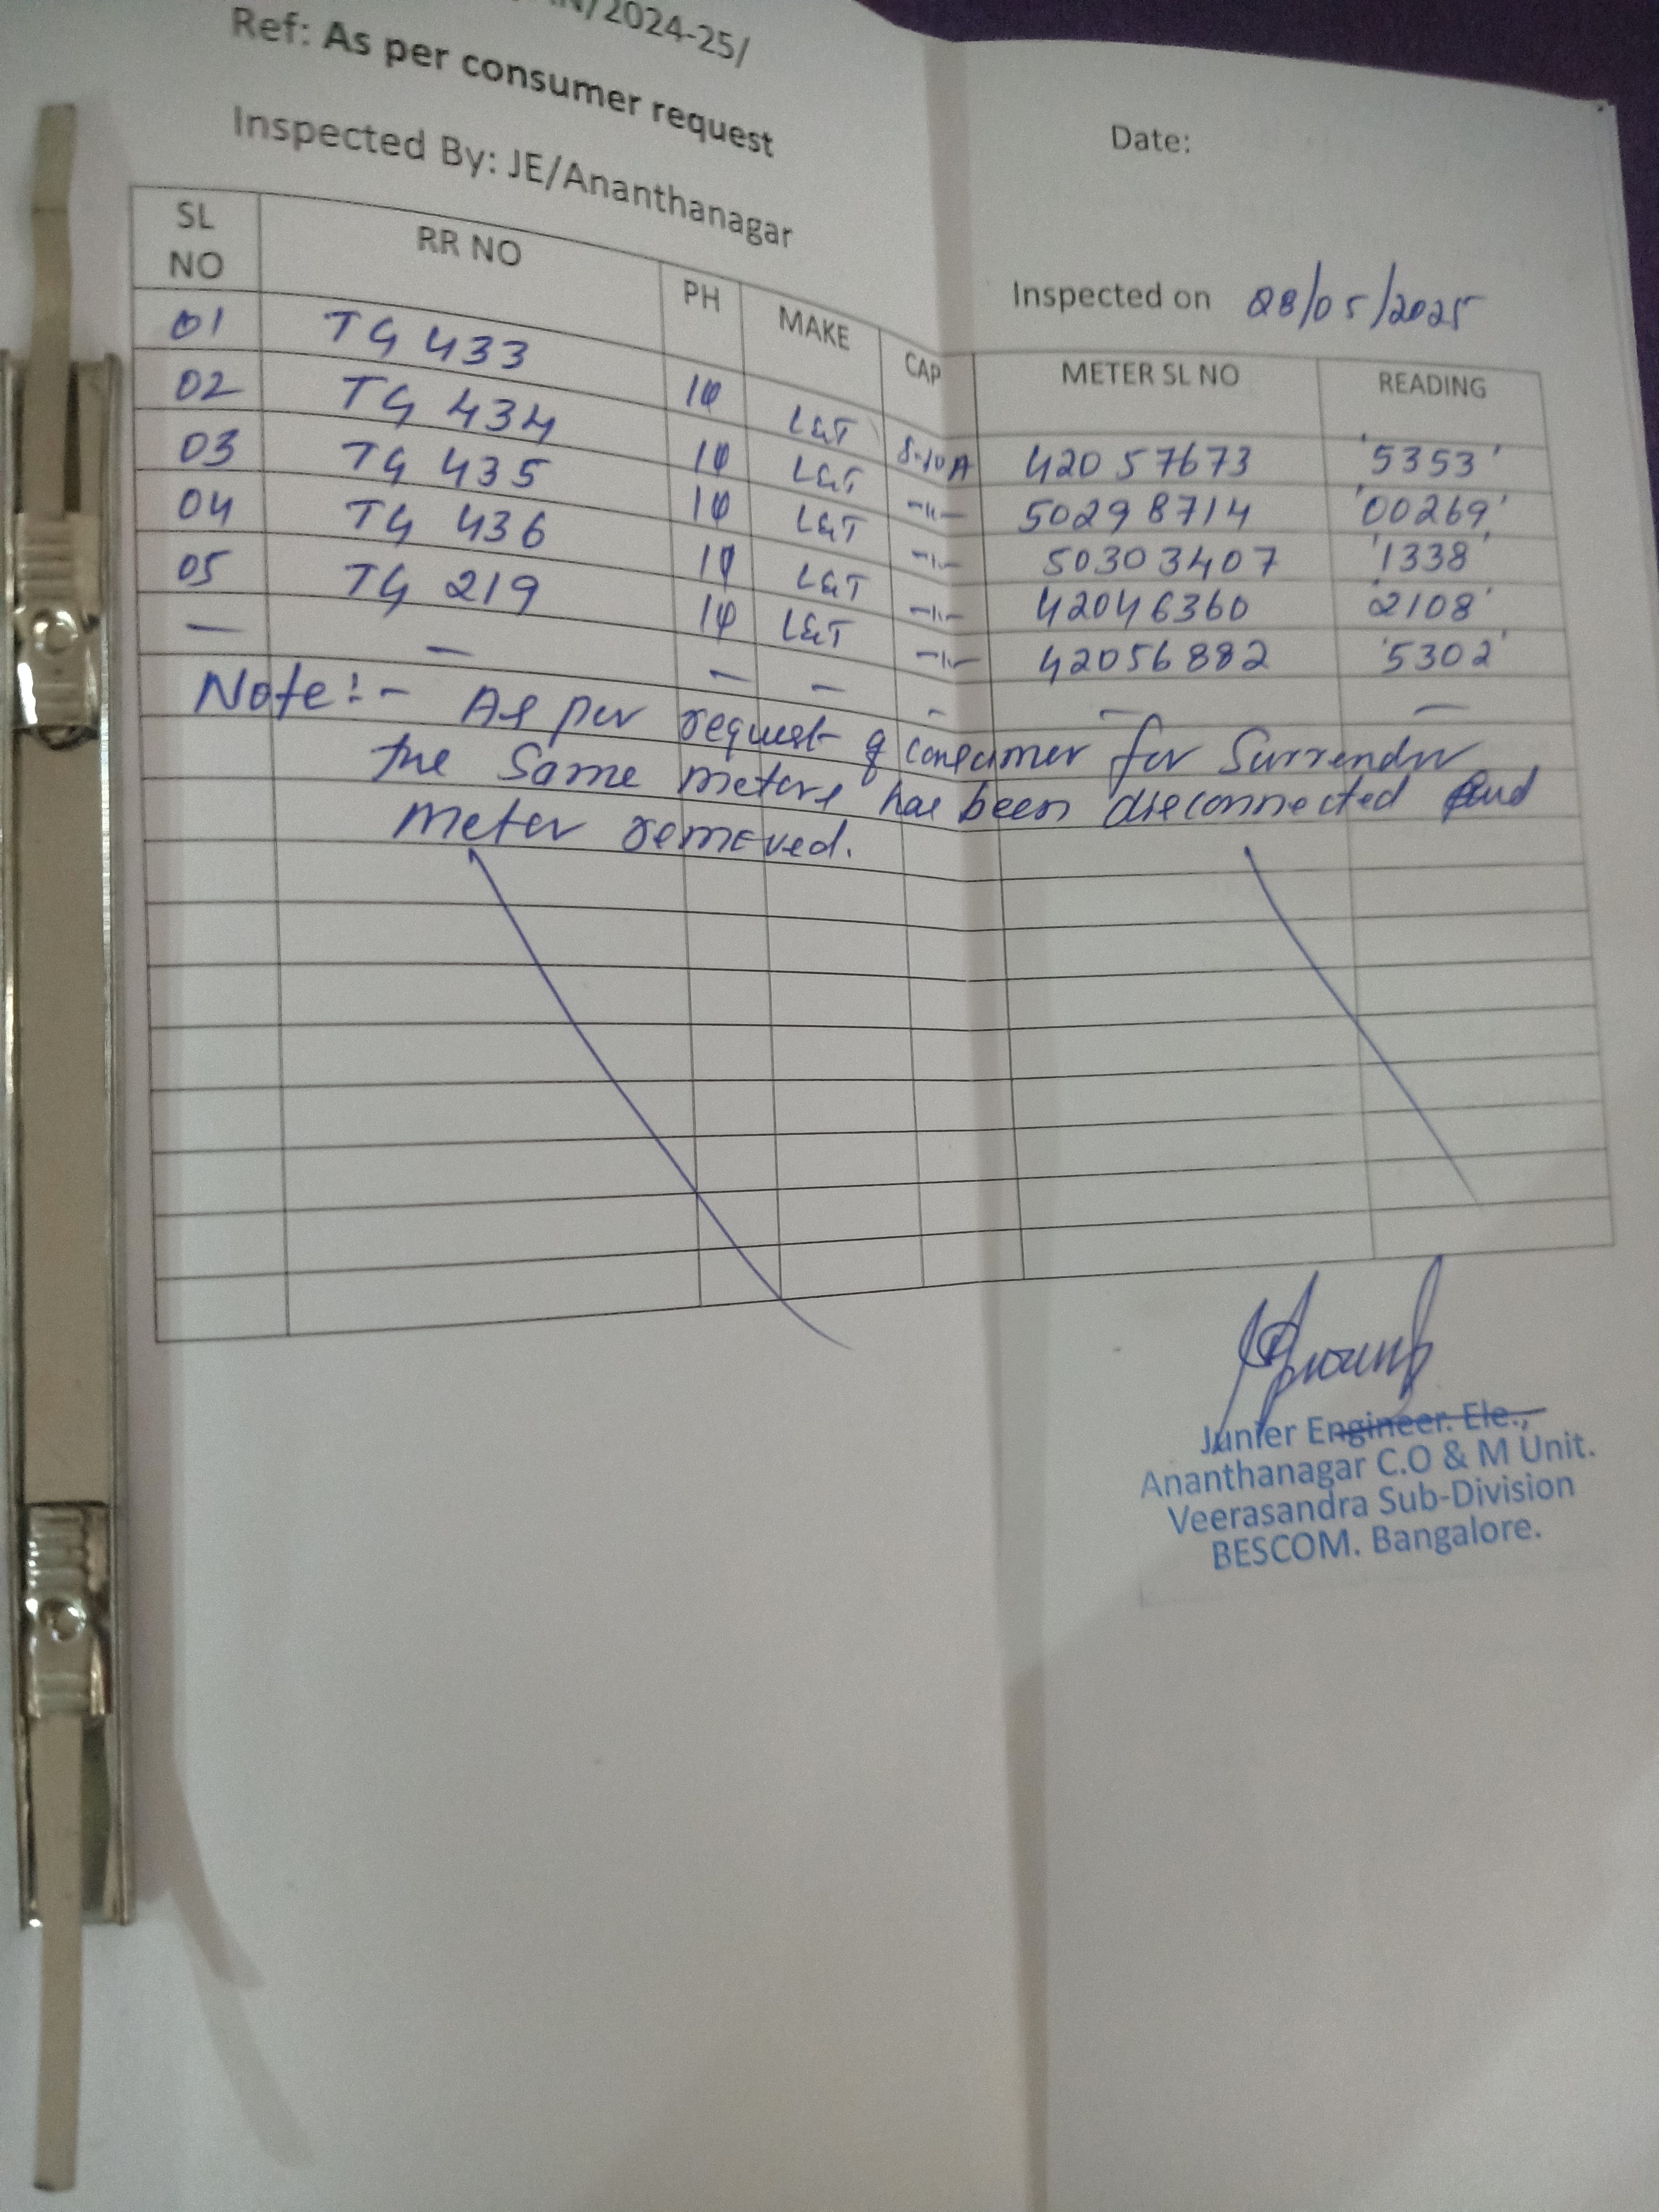 /2024-25/
Ref: As per consumer request
Date:
Inspected By: JE/Ananthanagar
Inspected on 28/05/2025
SL NO RR NO PH MAKE CAP METER SL NO READING
01 TG 433 1φ L&T 5-10A 42057673 '5353'
02 TG 434 1φ L&T -"- 50298714 '00269'
03 TG 435 1φ L&T -"- 50303407 '1338'
04 TG 436 1φ L&T -"- 42046360 '2108'
05 TG 219 1φ L&T -"- 42056882 '5302'
— — — — - — —
Note:- As per request of consumer for Surrender
the same meters has been disconnected and
meter removed.
Junier Engineer. Ele.,
Ananthanagar C.O & M Unit.
Veerasandra Sub-Division
BESCOM. Bangalore.